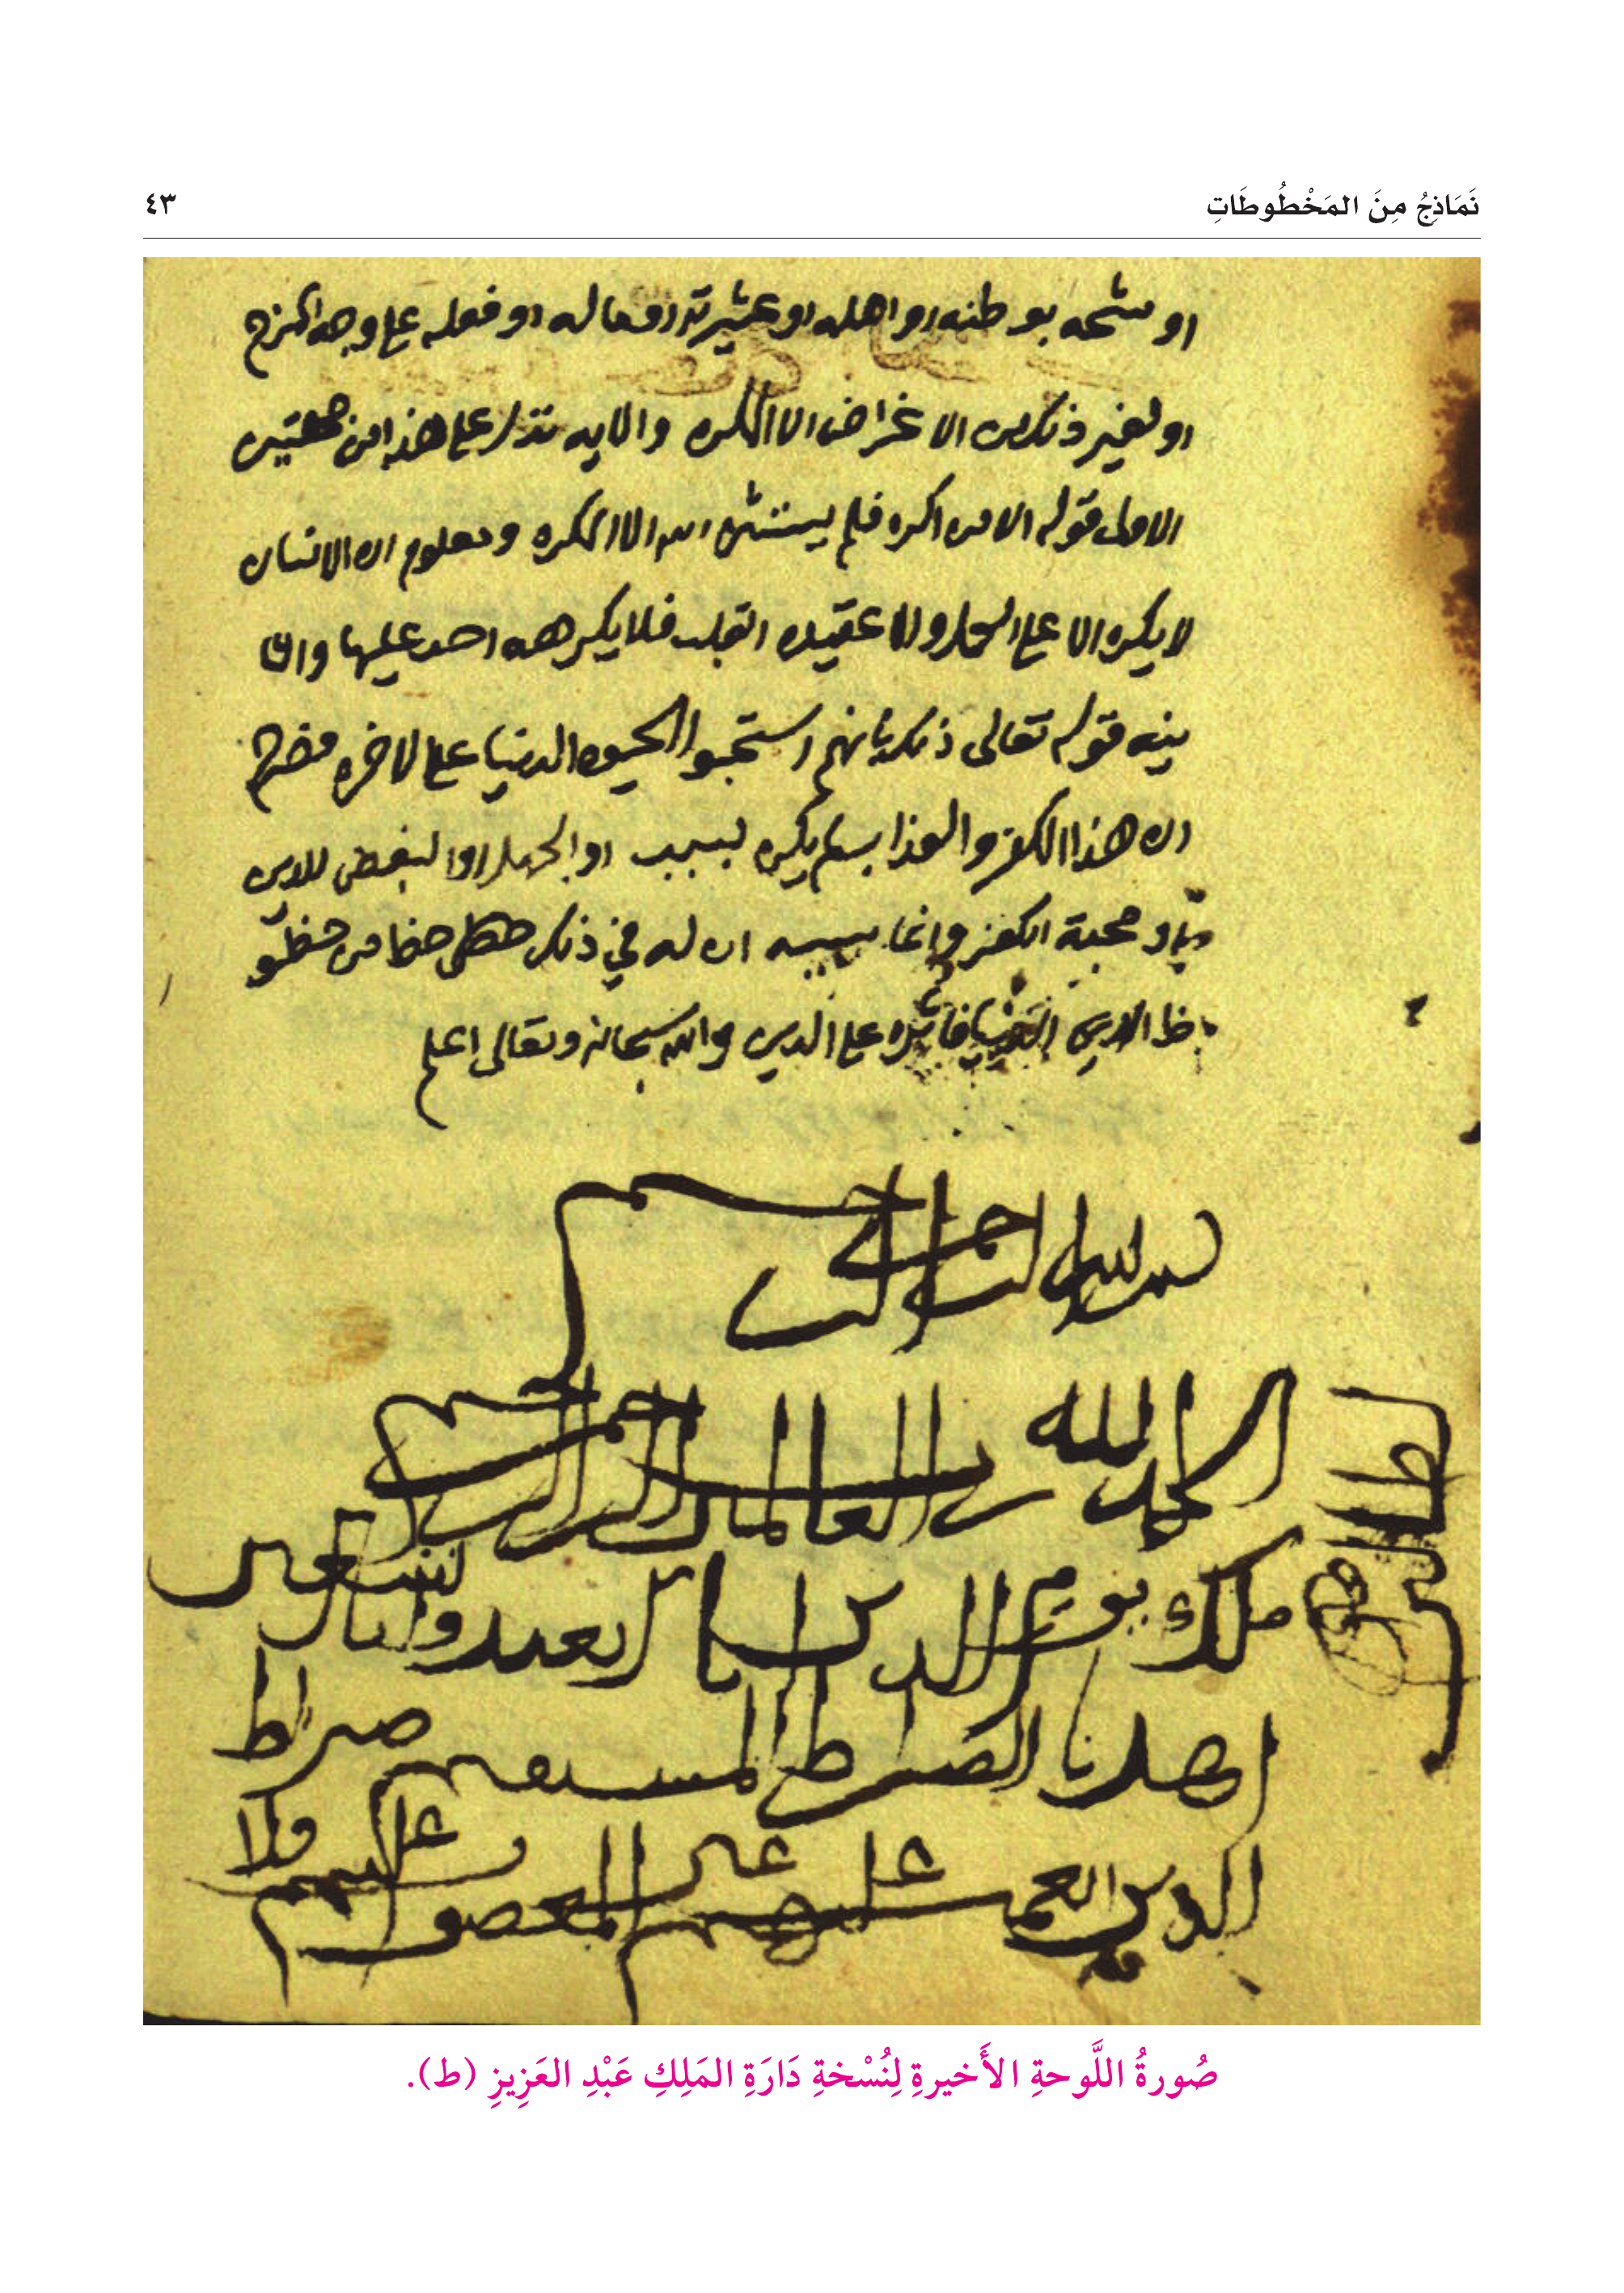 نَمَاذِجُ مِنَ المَخْطُوطَاتِ
٤٣
او مشحه بوطنه او اهله او عشيرته او ماله او فعله على وجه المزح
او لغير ذلك من الاغراض الا المكره والايه تدل على هذا من جهتين
الاولى قوله الا من اكره فلم يستثن الله الا المكره ومعلوم ان الانسان
لا يكره الا على العمل ولا عقيده القلب فلا يكرهه احد عليها والثا
نيه قوله تعالى ذلك بانهم استحبوا الحيوه الدنيا على الاخره فصرح
ان هذا الكفر والعذاب لم يكن بسبب او الجهل او البغض للدين
او محبة الكفر وانما سببه ان له في ذلك حظا من حظو
ظ الدنيا فاثره على الدين والله سبحانه وتعالى اعلم
بسم الله الرحمن الرحيم
الحمد لله رب العالمين الرحمن الرحيم
ملك يوم الدين اياك نعبد واياك نستعين
اهدنا الصراط المستقيم صراط
الذين انعمت عليهم غير المغضوب عليهم ولا
صُورةُ اللَّوحةِ الأَخيرةِ لِنُسْخةِ دَارَةِ المَلِكِ عَبْدِ العَزِيزِ (ط).